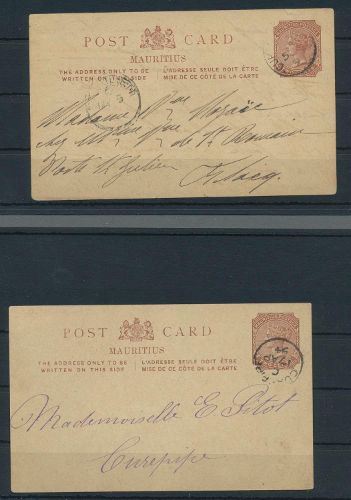 POST CARD
MAURITIUS
THE ADDRESS ONLY TO BE WRITTEN ON THIS SIDE
L'ADRESSE SEULE DOIT ÊTRE MISE DE CE CÔTÉ DE LA CARTE
Madame
chez
de St Romain
Poste St Julien
Flacq
POST CARD
MAURITIUS
THE ADDRESS ONLY TO BE WRITTEN ON THIS SIDE
L'ADRESSE SEULE DOIT ÊTRE MISE DE CE CÔTÉ DE LA CARTE
Mademoiselle E. Pitot
Curepipe